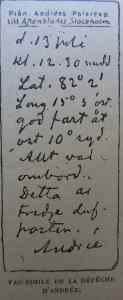 Från Andrées Polarexp.
till Aftonbladet, Stockholm
d. 13 juli
kl. 12.30 midd
Lat. 82° 2'
Long 15° 5' öst
god fart åt
ost 10° syd.
Allt väl
ombord.
Detta är
tredje duf-
posten.
Andrée
FAC-SIMILE DE LA DÉPÊCHE
D'ANDRÉE.